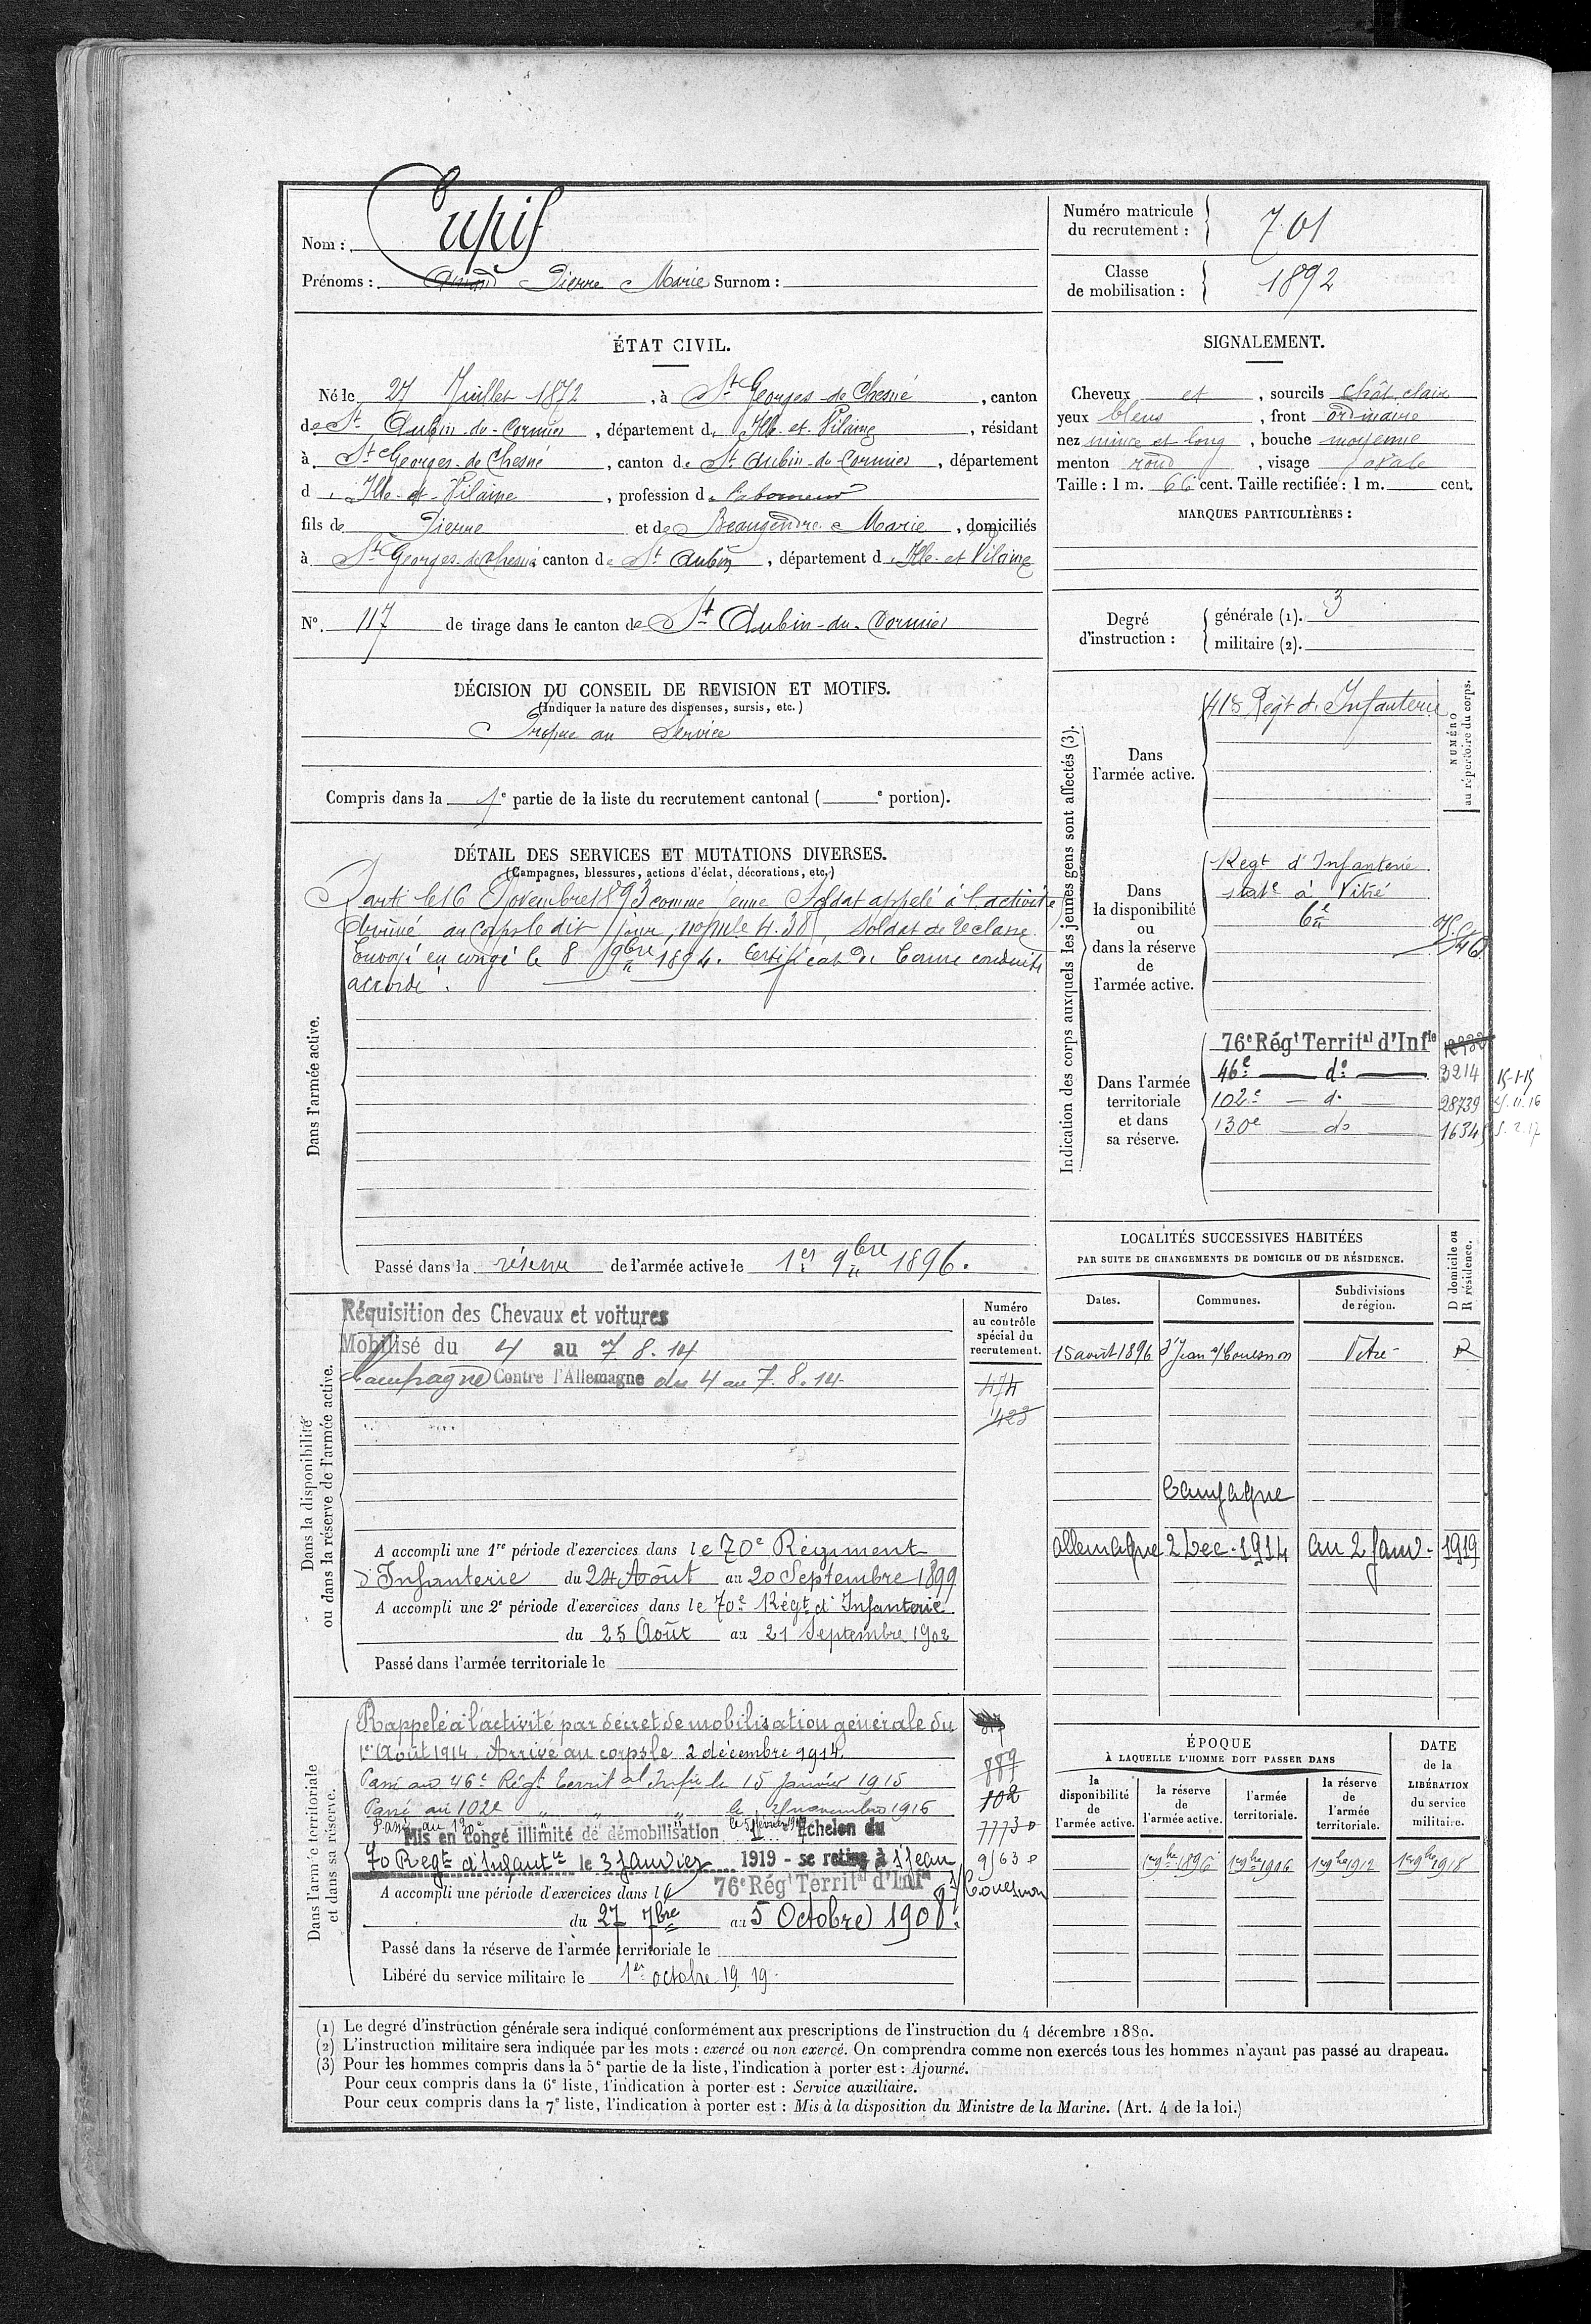 Nom : Cupif
Prénoms : Amand Pierre Marie Surnom :
Numéro matricule du recrutement : 701
Classe de mobilisation : 1892
ÉTAT CIVIL.
Né le 27 Juillet 1872, à St Georges-de-Chesné, canton
de St Aubin-du-Cormier, département d Ille-et-Vilaine, résidant
à St Georges-de-Chesné, canton de St Aubin-du-Cormier, département
d Ille-et-Vilaine, profession de laboureur
fils de Pierre et de Beaugendre Marie, domiciliés
à St Georges-de-Chesné canton de St Aubin, département d Ille-et-Vilaine
No. 117 de tirage dans le canton de St Aubin-du-Cormier
DÉCISION DU CONSEIL DE REVISION ET MOTIFS.
(Indiquer la nature des dispenses, sursis, etc.)
Propre au Service
Compris dans la 1e partie de la liste du recrutement cantonal ( e portion).
DÉTAIL DES SERVICES ET MUTATIONS DIVERSES.
(Campagnes, blessures, actions d'éclat, décorations, etc.)
Dans l'armée active.
Parti le 16 Novembre 1893 comme jeune Soldat appelé à l'activité
Arrivé au corps le dit jour, soldat de 2e classe.
Envoyé en congé le 8 9bre 1894. Certificat de bonne conduite
accordé.
Passé dans la réserve de l'armée active le 1er 9bre 1896.
Dans la disponibilité
ou dans la réserve de l'armée active.
Réquisition des Chevaux et voitures
Mobilisé du 4 au 7 8.14
Campagne Contre l'Allemagne du 4 au 7.8.14
Numéro
au contrôle
spécial du
recrutement.
474
423
A accompli une 1re période d'exercices dans le 70e Régiment
d'Infanterie du 24 Août au 20 Septembre 1899
A accompli une 2e période d'exercices dans le 70e Régt d'Infanterie
du 25 Août au 21 Septembre 1902
Passé dans l'armée territoriale le
Dans l'armée territoriale
et dans sa réserve.
Rappelé à l'activité par décret de mobilisation générale du
1er Août 1914. Arrivé au corps le 2 décembre 1914.
Passé au 46e Régt Territal Infie le 15 Janvier 1915
Passé au 102e " " " le novembre 1916
Passé au 130e le 5 février 1917
Mis en congé illimité de démobilisation Echelon du
70 Regt d'Infantie le 3 Janvier 1919 - se retire à St Jean
s/ Couesnon
887
102
7773
9563
A accompli une période d'exercices dans le 76e Régt Territal d'Infie
du 27 7bre au 5 Octobre 1908.
Passé dans la réserve de l'armée territoriale le
Libéré du service militaire le 1er octobre 1919.
SIGNALEMENT.
Cheveux et, sourcils chât. clair
yeux bleus, front ordinaire
nez mince et long, bouche moyenne
menton rond, visage ovale
Taille : 1 m. 66 cent. Taille rectifiée : 1 m. cent.
MARQUES PARTICULIÈRES :
Degré d'instruction : générale (1). 3
militaire (2).
Indication des corps auxquels les jeunes gens sont affectés (3).
NUMÉRO
au répertoire du corps.
Dans
l'armée active.
Régt d'Infanterie
Dans
la disponibilité
ou
dans la réserve
de
l'armée active.
Regt d'Infanterie
staté à Vitré
Dans l'armée
territoriale
et dans
sa réserve.
76e Régt Territal d'Infie
46e do 3214 15-1-15
102e do 28739
130e do 1634 5.2.17
LOCALITÉS SUCCESSIVES HABITÉES
PAR SUITE DE CHANGEMENTS DE DOMICILE OU DE RÉSIDENCE.
Dates. Communes. Subdivisions de région. D domicile ou R résidence.
15 août 1896 St Jean s/Couesnon Vitré R
Campagne
Allemagne 2 Dec. 1914 au 2 Janv. 1919
ÉPOQUE
À LAQUELLE L'HOMME DOIT PASSER DANS
la disponibilité de l'armée active.
la réserve de l'armée active.
l'armée territoriale.
la réserve de l'armée territoriale.
DATE de la LIBÉRATION du service militaire.
1er 9bre 1896 1er 9bre 1906 1er 9bre 1912 1er 9bre 1918
(1) Le degré d'instruction générale sera indiqué conformément aux prescriptions de l'instruction du 4 décembre 1889.
(2) L'instruction militaire sera indiquée par les mots : exercé ou non exercé. On comprendra comme non exercés tous les hommes n'ayant pas passé au drapeau.
(3) Pour les hommes compris dans la 5e partie de la liste, l'indication à porter est : Ajourné.
Pour ceux compris dans la 6e liste, l'indication à porter est : Service auxiliaire.
Pour ceux compris dans la 7e liste, l'indication à porter est : Mis à la disposition du Ministre de la Marine. (Art. 4 de la loi.)